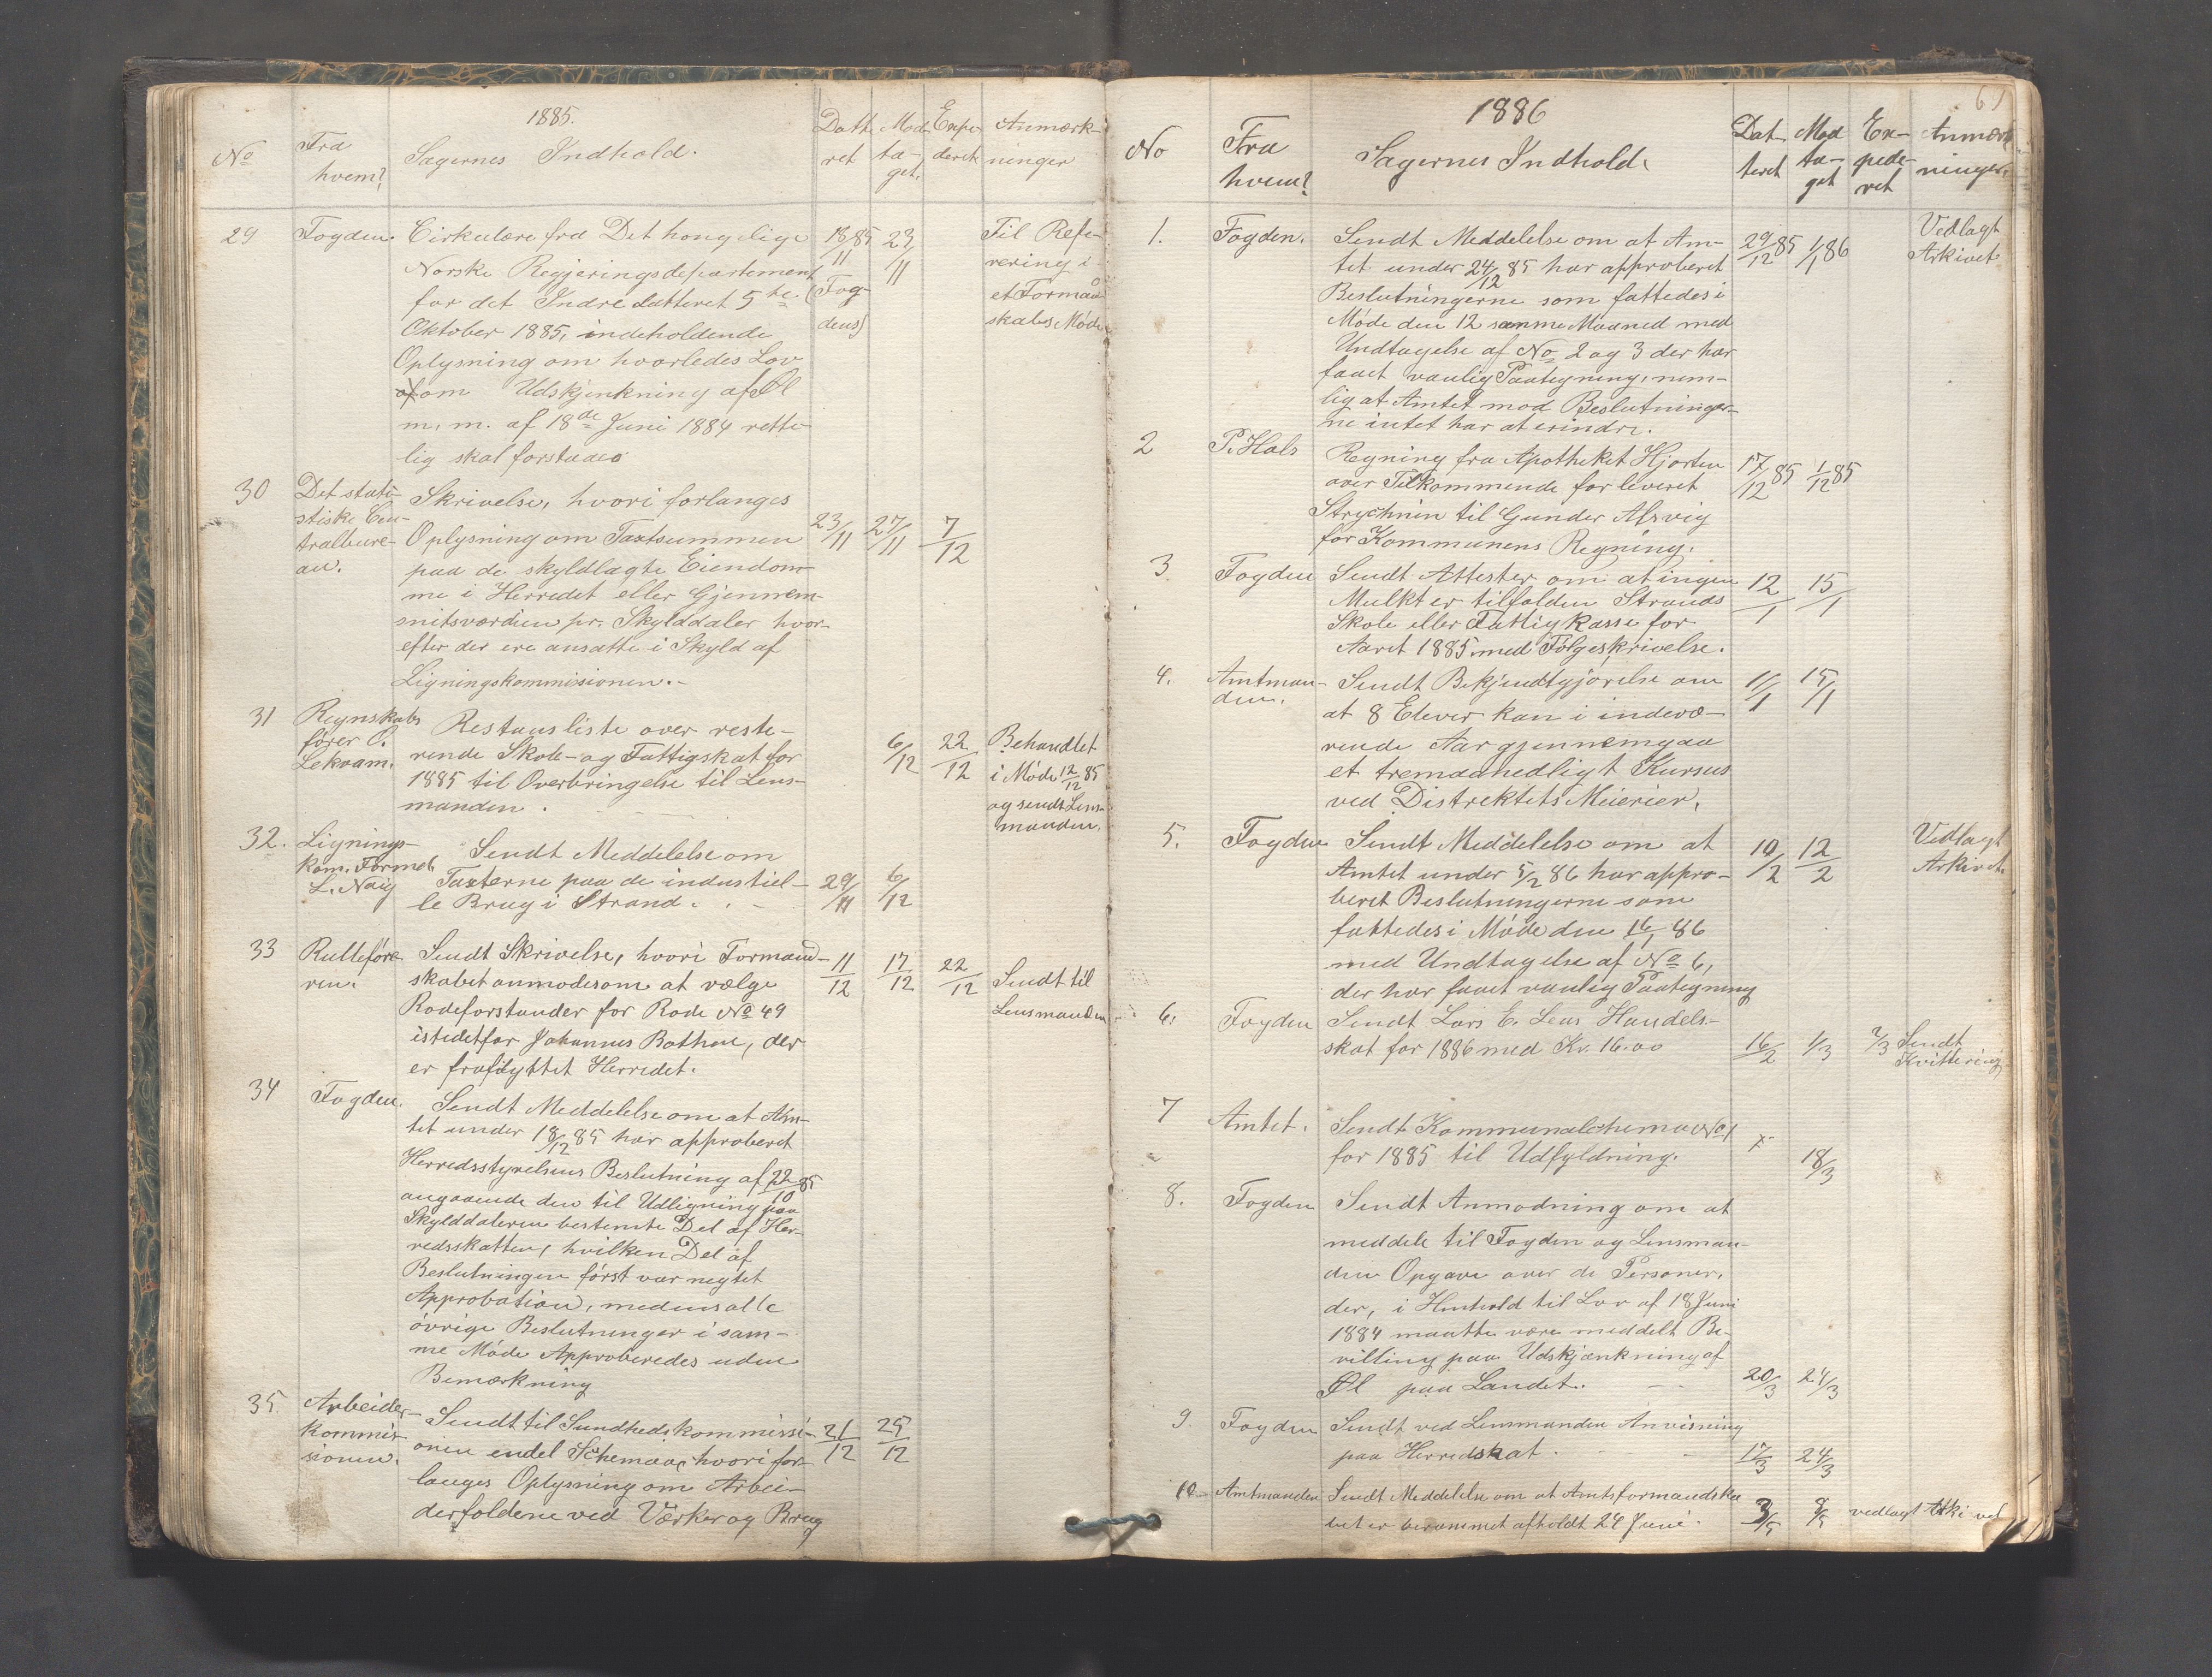 1885.
No
Fra
hvem?
Sagernes Indhold.
Datte
ret
Mod
ta-
get.
Expe
deret
Anmærk-
ninger
29
Fogden.
Cirkulære fra Det kongelige
Norske Regjeringsdepartement
for det Indre datteret 5te
Oktober 1885, indeholdende
Oplysning om hvorledes Lov
om Udskjenkning af Øl
m. m. af 18de Juni 1884 rette-
lig skal forstaaes
18/11 85
(Fog-
dens)
23/11
Til Refe-
rering i
et Formand
skabs Møde
30
Det stati-
stiske Cen-
tralbure-
au.
Skrivelse, hvori forlanges
Oplysning om Taxtsummen
paa de skyldlagte Eiendom-
me i Herredet eller Gjennem-
snitsværdien pr. Skylddaler hvor-
efter der ere ansatte i Skyld af
Ligningskommissionen.-
23/11
27/11
7/12
31
Regnskabs
fører O.
Lekvam.
Restansliste over reste-
rende Skole- og Fattigskat for
1885 til Overbringelse til Lens-
manden.
6/12
22/12
Behandlet
i Møde 12/12 85
og sendt Lens-
manden.
32.
Lignings-
kom. Formd.
L. Nag
Sendt Meddelelse om
Taxterne paa de industiel-
le Brug i Strand.
29/11
6/12
33
Rulleføre
ren.
Sendt Skrivelse, hvori Formand-
skabet anmodes om at vælge
Rodeforstander for Rode No 49
istedetfor Johannes Bathne, der
er fraflyttet Herredet.
11/12
17/12
22/12
Sendt til
Lensmanden
34
Fogden.
Sendt Meddelelse om at Am-
tet under 18/12 85 har approberet
Herredsstyrelsens Beslutning af 22/10 85
angaaende den til Udligning paa
Skylddaleren bestemte Del af Her-
redsskatten, hvilken Del af
Beslutningen først var negtet
Approbation, medens alle
øvrige Beslutninger i sam-
me Møde Approberedes uden
Bemærkning
35.
Arbeider-
kommis-
sionen.
Sendt til Sundhedskommissi-
onen endel Schemaer hvori for-
langes Oplysning om Arbei-
derfoldene ved Værker og Brug
21/12
25/12
1886
No
Fra
hvem?
Sagernes Indhold.
Dat
teret
Mod
ta-
get
Ex-
pede-
ret
Anmærk
ninger.
1.
Fogden.
Sendt Meddelelse om at Am-
tet under 24/12 85 har approberet
Beslutningerne som fattedes i
Møde den 12 samme Maaned med
Undtagelse af No 2 og 3 der har
faaet vanlig Paategning, nem-
lig at Amtet mod Beslutninger-
ne intet har at erindre.
29/12 85
1/1 86
Vedlagt
Arkivet
2
P. Hals
Regning fra Apotheket Hjorten
over Tilkommende for leveret
Strychnin til Gunder Alsvig
for Kommunens Regning.
17/12 85
1/12 85
3
Fogden
Sendt Attester om at ingen
Mulkt er tilfalden Strands
Skole eller Fattigkasse for
Aaret 1885 med Følgeskrivelse.
12/1
15/1
4.
Amtman-
den.
Sendt Bekjendtgjørelse om
at 8 Elever kan i indevæ-
rende Aar gjennemgaa
et tremaanedligt Kursus
ved Distrektets Meierier.
11/1
15/1
5.
Fogden
Sendt Meddelelse om at
Amtet under 5/2 86 har appro-
beret Beslutningerne som
fattedes i Møde den 16/1 86
med Undtagelse af No 6,
der har faaet vanlig Paategning
10/2
12/2
Vedlagt
Arkivet.
6.
Fogden
Sendt Lars E. Leas Handels-
skat for 1886 med Kr. 16.00
16/2
1/3
2/3
Sendt
Kvittering
7
Amtet.
Sendt Kommunalschema No 1
for 1885 til Udfyldning.
x
18/3
8.
Fogden
Sendt Anmodning om at
meddele til Fogden og Lensman-
den Opgave over de Personer,
der, i Henhold til Lov af 18 Juni
1884 maatte være meddelt Be-
villing paa Udskjænkning af
Øl paa Landet.
20/3
24/3
9.
Fogden
Sendt ved Lensmanden Anvisning
paa Herredskat.
17/3
24/3
10
Amtmanden
Sendt Meddelelse om at Amtsformandska
bet er berammet afholdt 24 Juni.
3/5
8/5
vedlagt Arkivet